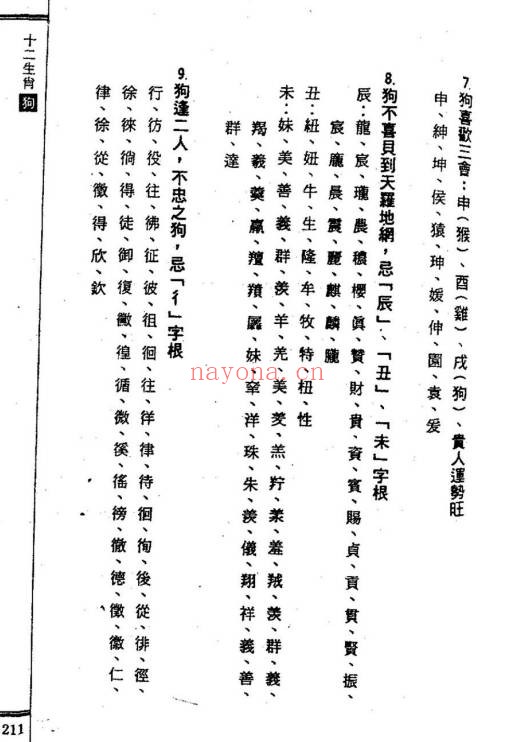 7.狗喜歡三會：申（猴）、酉（雞）、戌（狗）、貴人運勢旺
申、紳、坤、侯、猿、珅、媛、伸、園、袁、爰
8.狗不喜見到天羅地網，忌「辰」、「丑」、「未」字根
辰：龍、宸、瓏、農、穠、櫻、眞、贊、財、貴、資、賓、賜、貞、貢、貫、賢、振、
宸、龐、晨、震、麗、麒、麟、朧
丑：紐、妞、牛、生、隆、牟、牧、特、杻、性
未：妹、美、善、義、群、羨、羊、羌、美、菱、羔、羜、業、羞、羢、羨、群、義、
羯、羲、羹、羸、羶、羵、羼、妹、幸、洋、珠、朱、羨、儀、翔、祥、義、善、
群、達
9.狗逢二人，不忠之狗，忌「彳」字根
行、彷、役、往、彿、征、彼、徂、徊、往、徉、律、待、徊、徇、後、從、徘、徑、
徐、徠、徜、得、徒、御、復、黴、徨、循、微、徯、徭、徬、徹、德、徵、徽、仁、
律、徐、從、徵、得、欣、欽
十二生肖 狗
211
nayona.cn